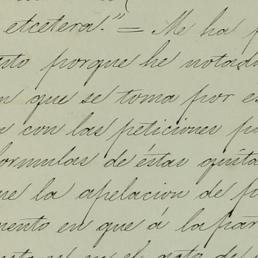 etcetera." = Me ha
porque he notado
que se toma por es
con las peticiones
formulas de éstas quita
la apelacion de
en que á la par